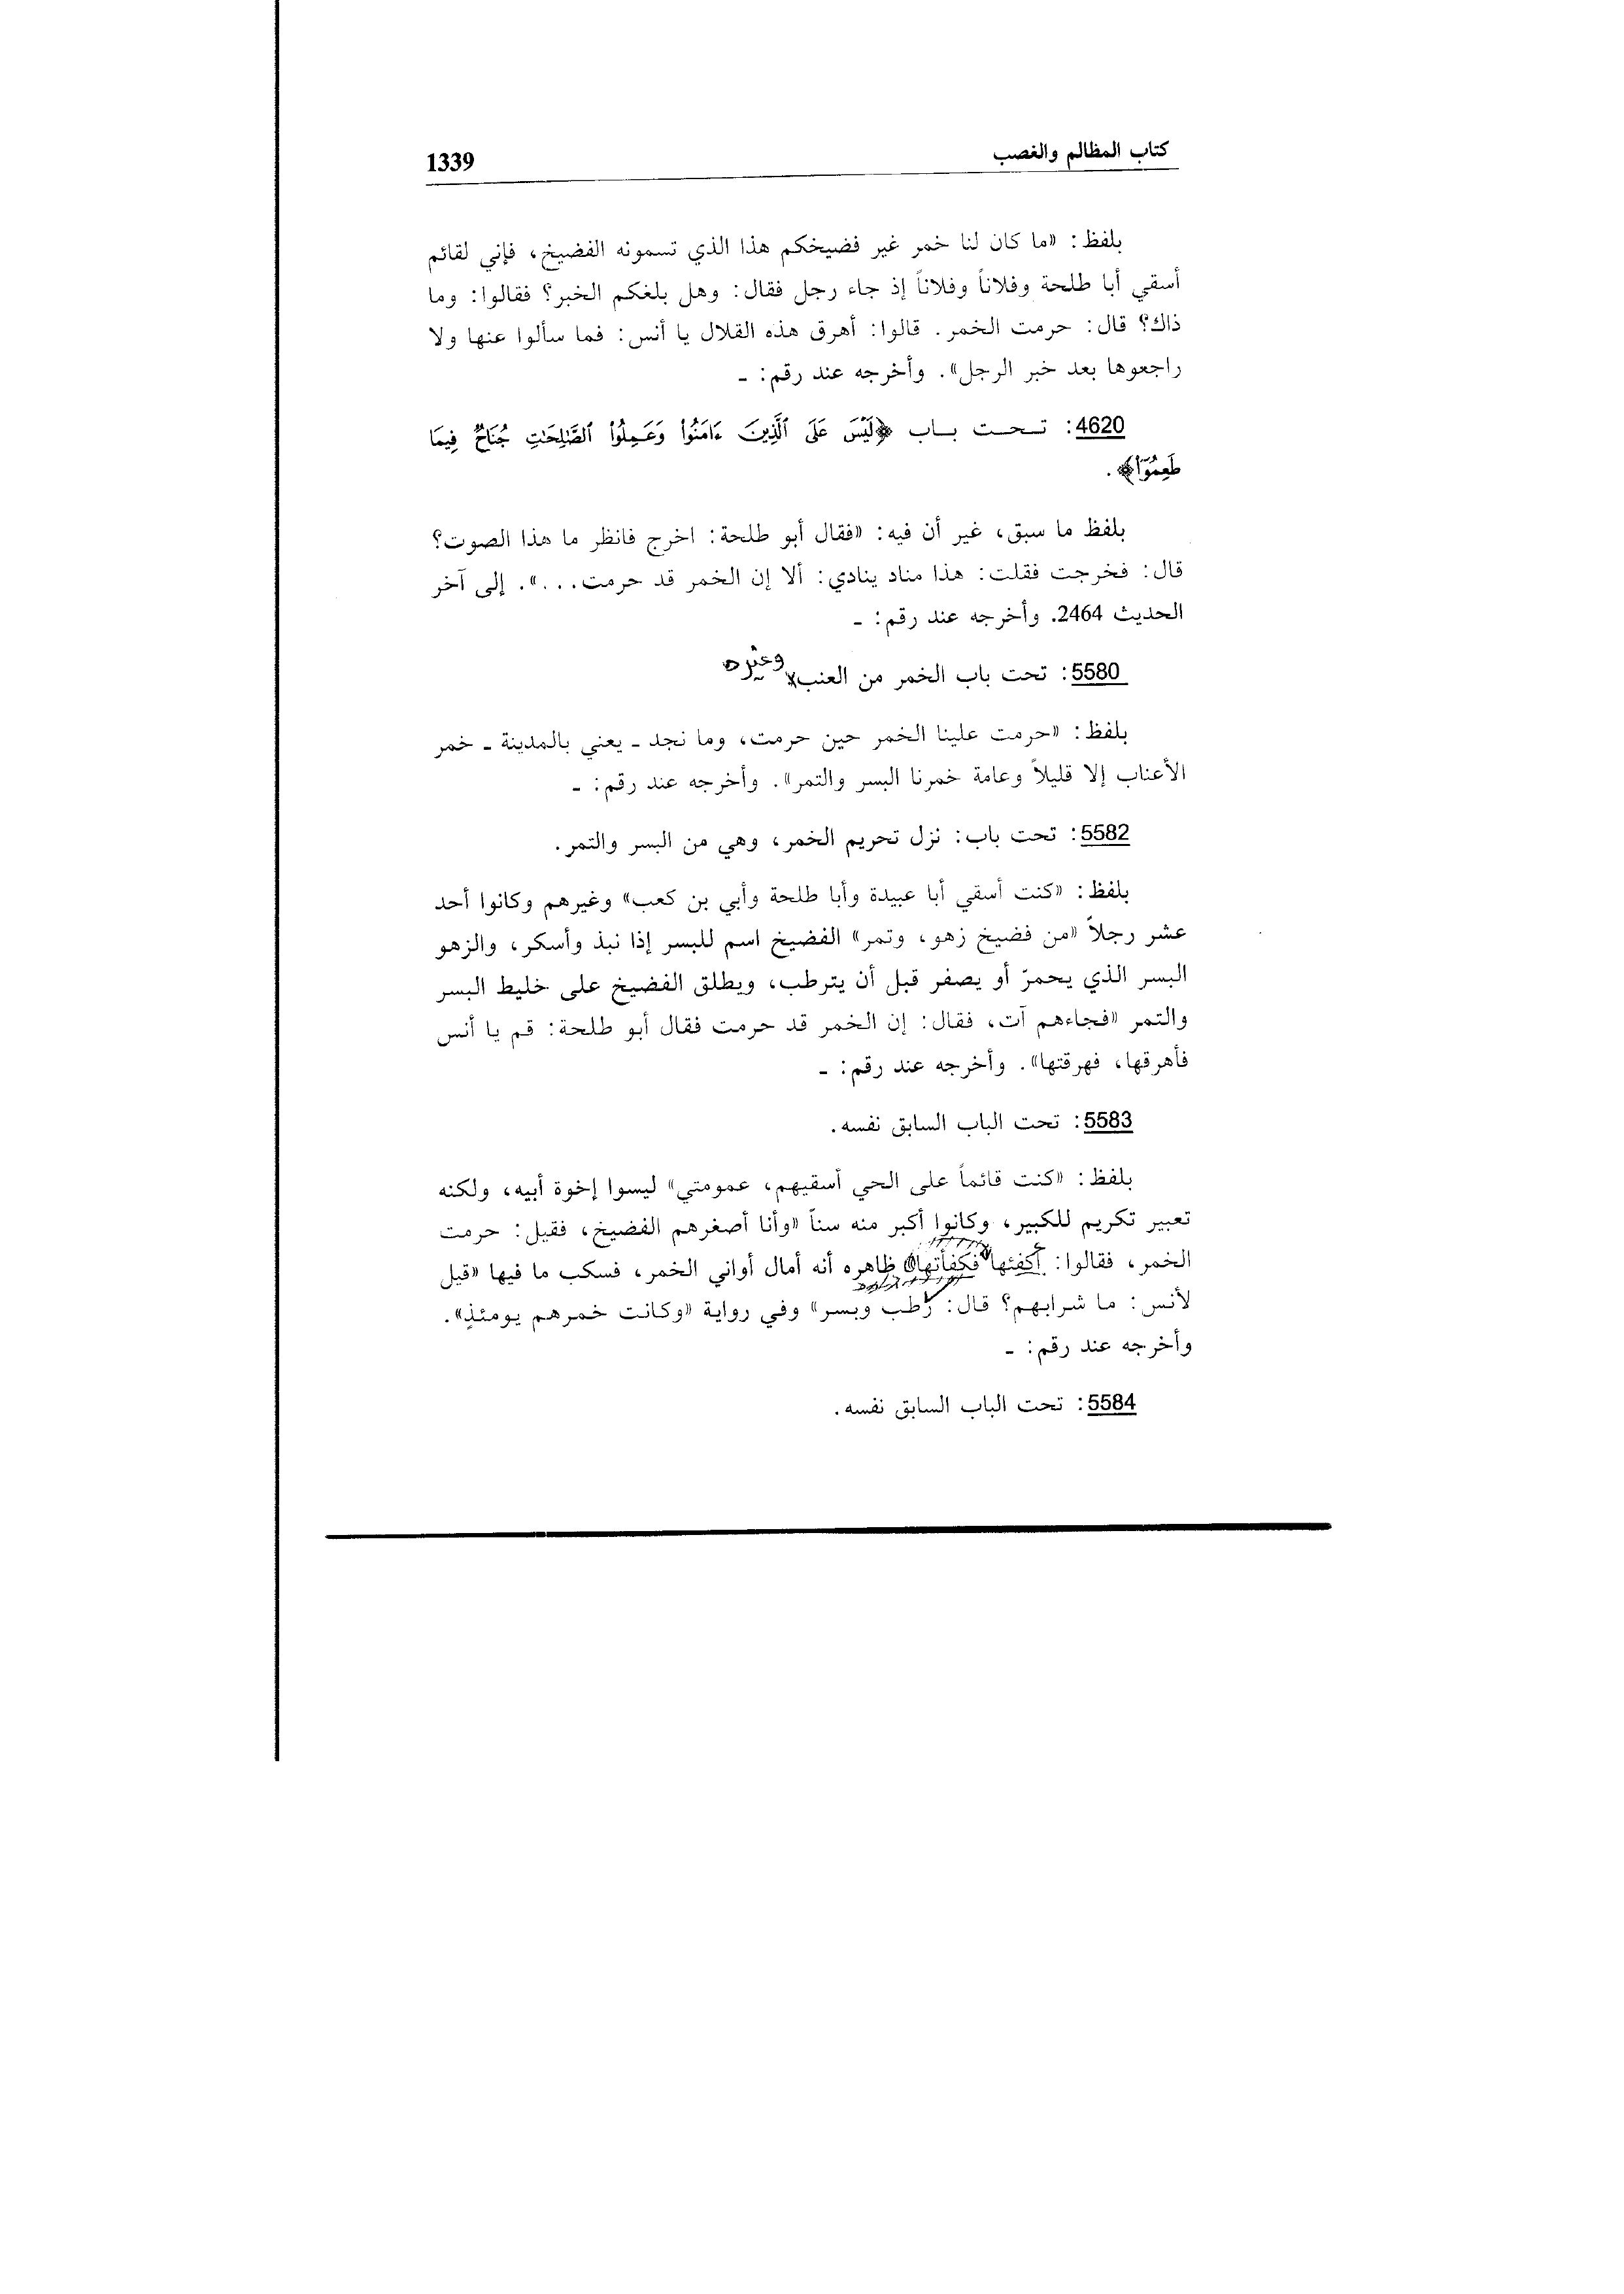 كتاب المظالم والغصب 1339
بلفظ: «ما كان لنا خمر غير فضيخكم هذا الذي تسمونه الفضيخ، فإني لقائم
أسقي أبا طلحة وفلاناً وفلاناً إذ جاء رجل فقال: وهل بلغكم الخبر؟ فقالوا: وما
ذاك؟ قال: حرمت الخمر. قالوا: أهرق هذه القلال يا أنس: فما سألوا عنها ولا
راجعوها بعد خبر الرجل». وأخرجه عند رقم: ـ
4620: تحت باب ﴿لَيْسَ عَلَى ٱلَّذِينَ ءَامَنُوا۟ وَعَمِلُوا۟ ٱلصَّـٰلِحَـٰتِ جُنَاحٌ فِيمَا
طَعِمُوٓا۟﴾.
بلفظ ما سبق، غير أن فيه: «فقال أبو طلحة: اخرج فانظر ما هذا الصوت؟
قال: فخرجت فقلت: هذا مناد ينادي: ألا إن الخمر قد حرمت...». إلى آخر
الحديث 2464. وأخرجه عند رقم: ـ
5580: تحت باب الخمر من العنب وغيره
بلفظ: «حرمت علينا الخمر حين حرمت، وما نجد ـ يعني بالمدينة ـ خمر
الأعناب إلا قليلاً وعامة خمرنا البسر والتمر». وأخرجه عند رقم: ـ
5582: تحت باب: نزل تحريم الخمر، وهي من البسر والتمر.
بلفظ: «كنت أسقي أبا عبيدة وأبا طلحة وأبي بن كعب» وغيرهم وكانوا أحد
عشر رجلاً «من فضيخ زهو، وتمر» الفضيخ اسم للبسر إذا نبذ وأسكر، والزهو
البسر الذي يحمرّ أو يصفر قبل أن يترطب، ويطلق الفضيخ على خليط البسر
والتمر «فجاءهم آت، فقال: إن الخمر قد حرمت فقال أبو طلحة: قم يا أنس
فأهرقها، فهرقتها». وأخرجه عند رقم: ـ
5583: تحت الباب السابق نفسه.
بلفظ: «كنت قائماً على الحي أسقيهم، عمومتي» ليسوا إخوة أبيه، ولكنه
تعبير تكريم للكبير، وكانوا أكبر منه سناً «وأنا أصغرهم الفضيخ، فقيل: حرمت
الخمر، فقالوا: أكفئها فكفأتها» ظاهره أنه أمال أواني الخمر، فسكب ما فيها «قيل
لأنس: ما شرابهم؟ قال: رطب وبسر» وفي رواية «وكانت خمرهم يومئذٍ».
وأخرجه عند رقم: ـ
5584: تحت الباب السابق نفسه.